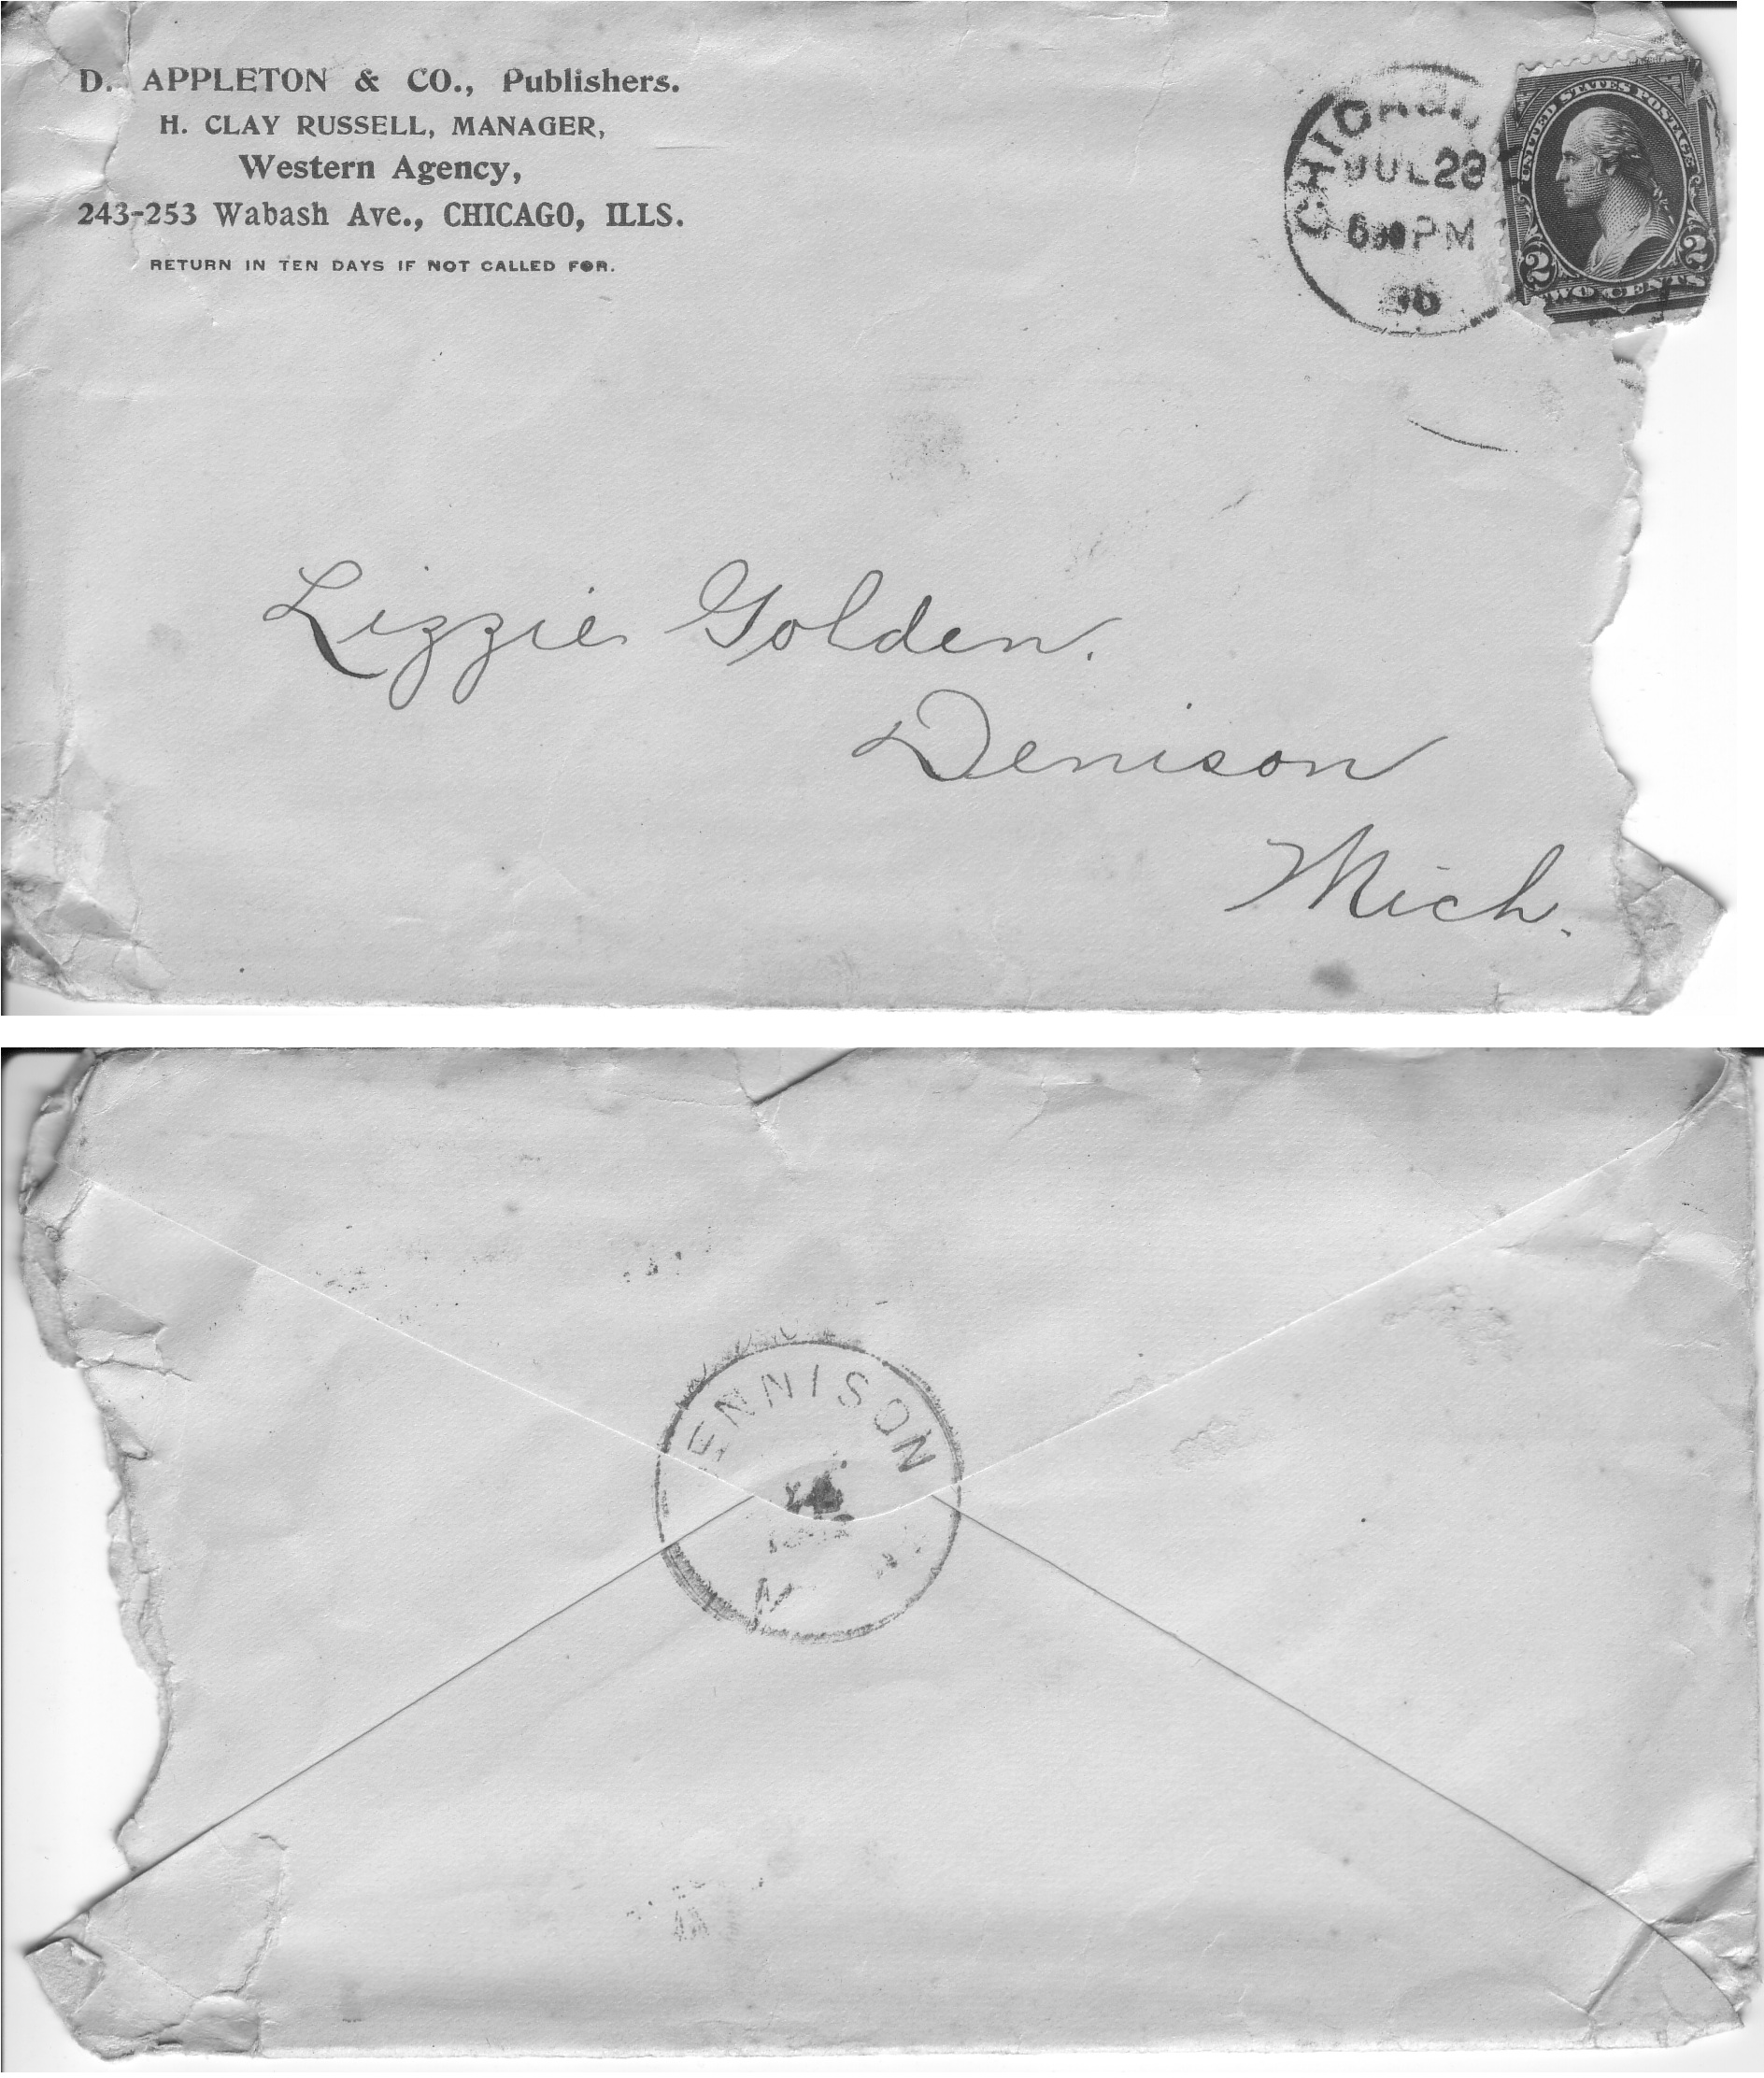 D. APPLETON & CO., Publishers.
H. CLAY RUSSELL, MANAGER,
Western Agency,
243-253 Wabash Ave., CHICAGO, ILLS.
RETURN IN TEN DAYS IF NOT CALLED FOR.
CHICAGO,
JUL 28
PM
UNITED STATES POSTAGE
2 2
TWO CENTS
Lizzie Golden.
Denison
Mich.
ENNISON